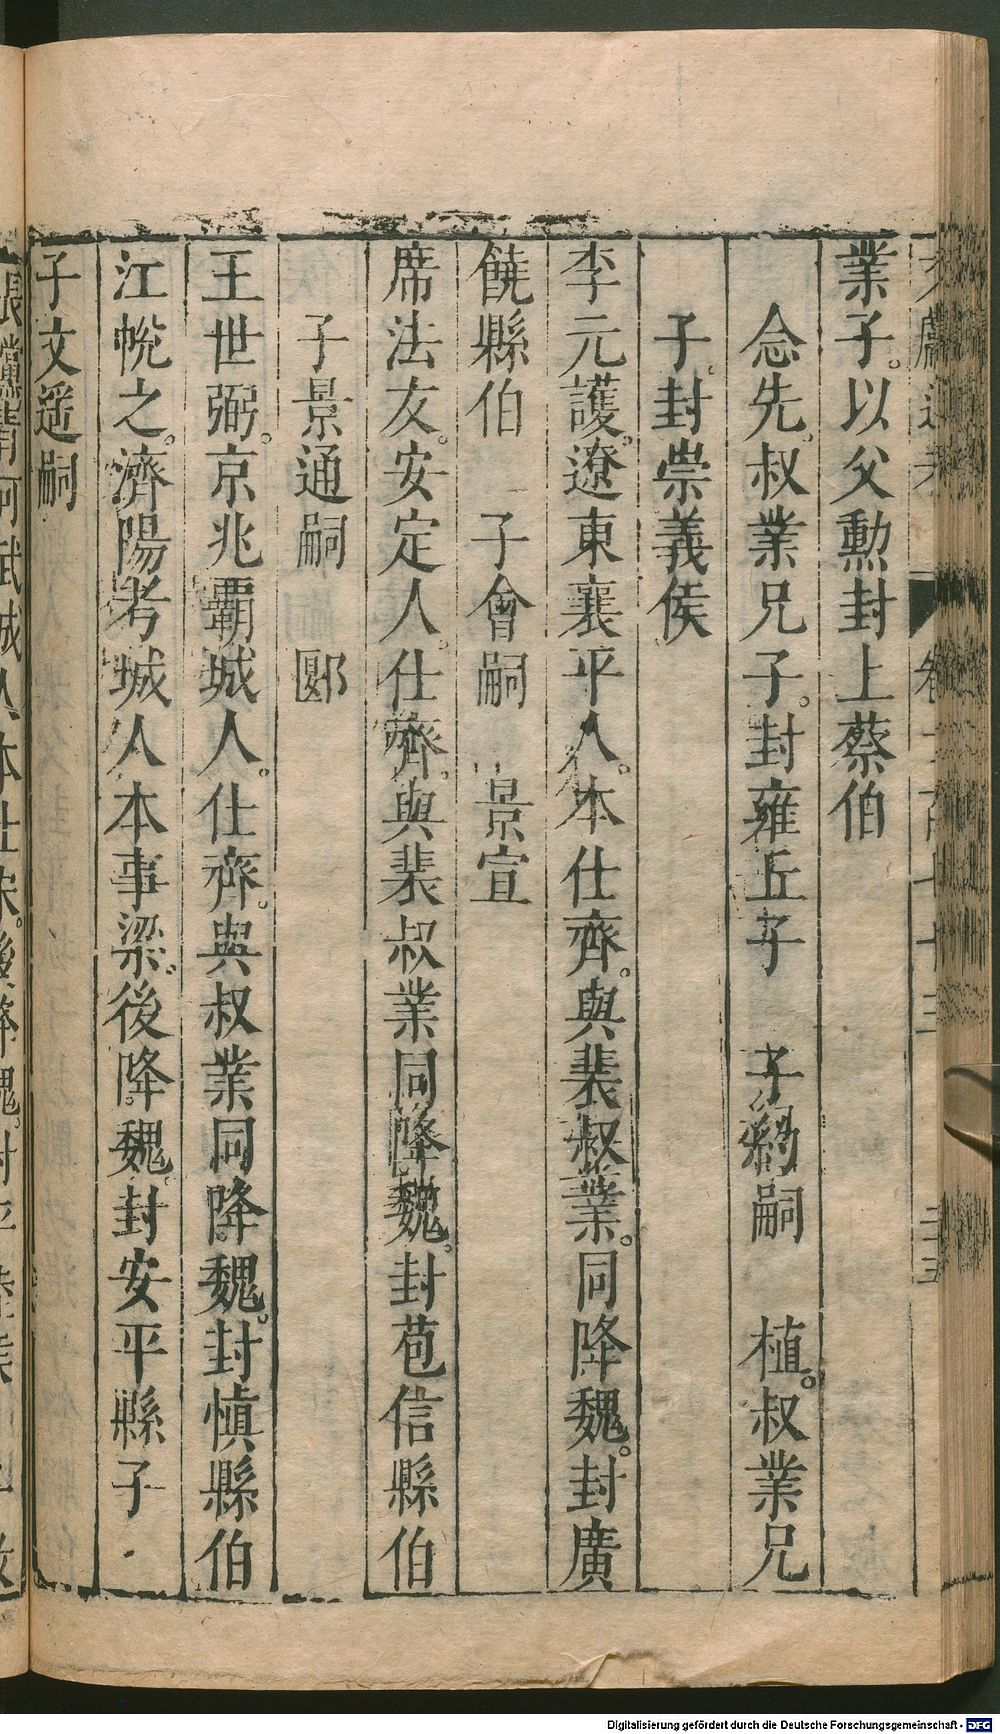 業子。以父勲封上蔡伯
念先。叔業兄子。封雍丘子　子約嗣　植。叔業兄
子。封崇義侯
李元護。遼東襄平人。本仕齊。與裴叔業。同降魏。封廣
饒縣伯　子會嗣　景宣
席法友。安定人。仕齊。與裴叔業同降魏。封苞信縣伯
子景通嗣　郾
王世弼。京兆霸城人。仕齊。與叔業同降魏。封愼縣伯
江悅之。濟陽考城人本事梁。後降魏。封安平縣子
子文遥嗣
Digitalisierung gefördert durch die Deutsche Forschungsgemeinschaft - DFG